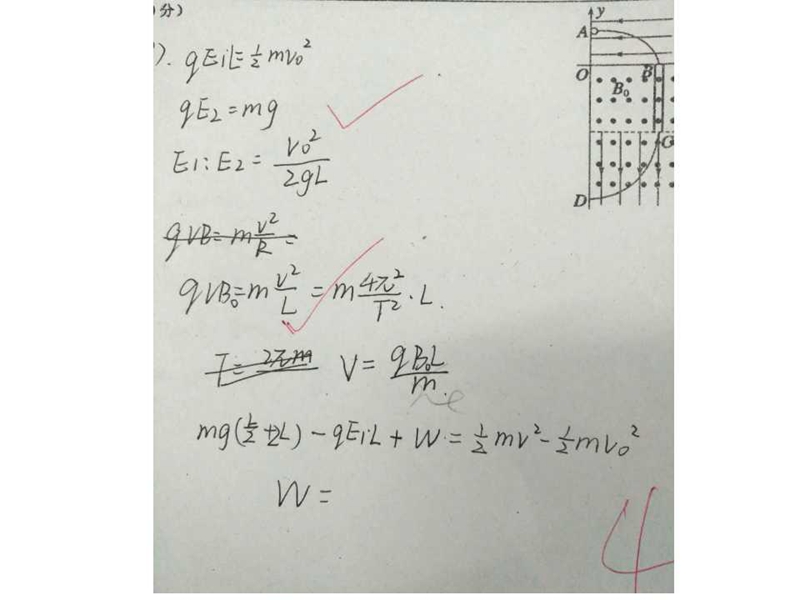 分)
). qE₁L=½mv₀²
qE₂=mg
E₁:E₂=v₀²/2gL
qVB=mv²/R=
qVB₀=mv²/L=m4π²/T²·L.
T=2πm V=qB₀L/m
mg(L/2+2L)-qE₁L+W=½mv²-½mv₀²
W=
4
y
A
O
B
B₀
C
D